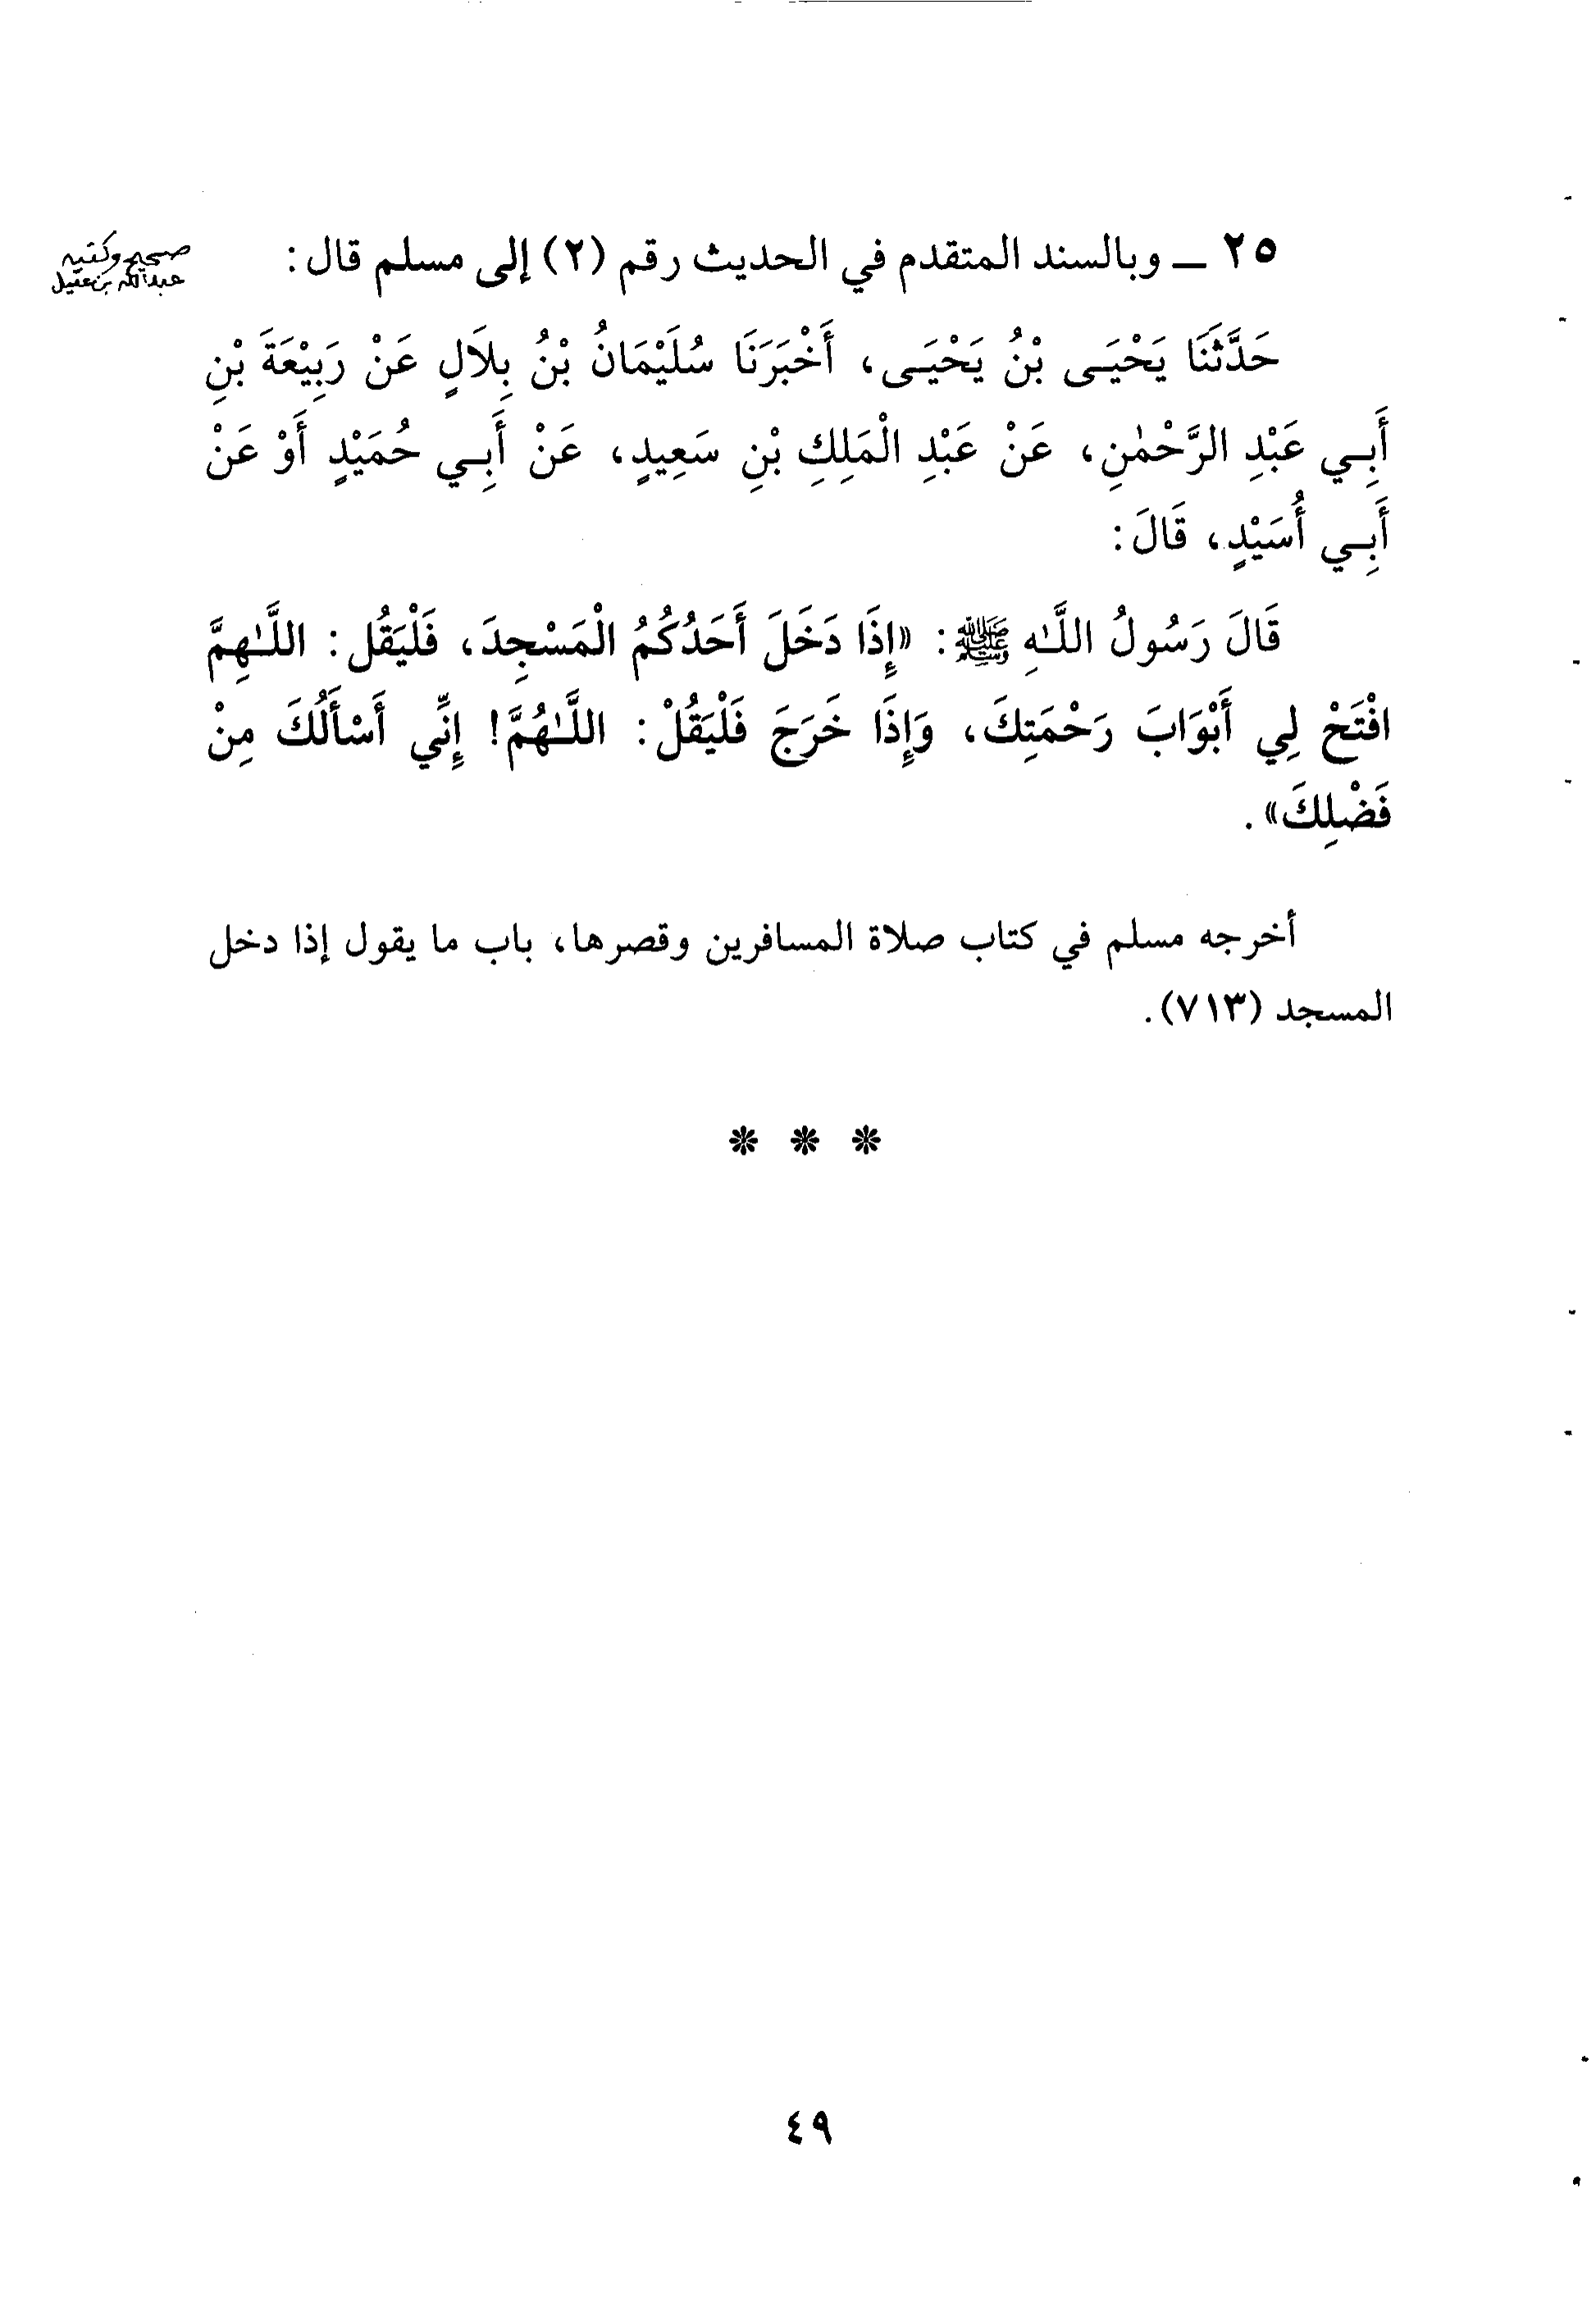 ٢٥ ــ وبالسند المتقدم في الحديث رقم (٢) إلى مسلم قال:
صحيح وكتبه
عبدالله بن عقيل
حَدَّثَنَا يَحْيَـى بْنُ يَحْيَـى، أَخْبَرَنَا سُلَيْمَانُ بْنُ بِلَالٍ عَنْ رَبِيْعَةَ بْنِ
أَبِـي عَبْدِ الرَّحْمٰنِ، عَنْ عَبْدِ الْمَلِكِ بْنِ سَعِيدٍ، عَنْ أَبِـي حُمَيْدٍ أَوْ عَنْ
أَبِـي أُسَيْدٍ، قَالَ:
قَالَ رَسُولُ اللَّـٰهِ ﷺ: «إِذَا دَخَلَ أَحَدُكُمُ الْمَسْجِدَ، فَلْيَقُل: اللَّـٰهِمَّ
افْتَحْ لِي أَبْوَابَ رَحْمَتِكَ، وَإِذَا خَرَجَ فَلْيَقُلْ: اللَّـٰهُمَّ! إِنِّي أَسْأَلُكَ مِنْ
فَضْلِكَ».
أخرجه مسلم في كتاب صلاة المسافرين وقصرها، باب ما يقول إذا دخل
المسجد (٧١٣).
* * *
٤٩